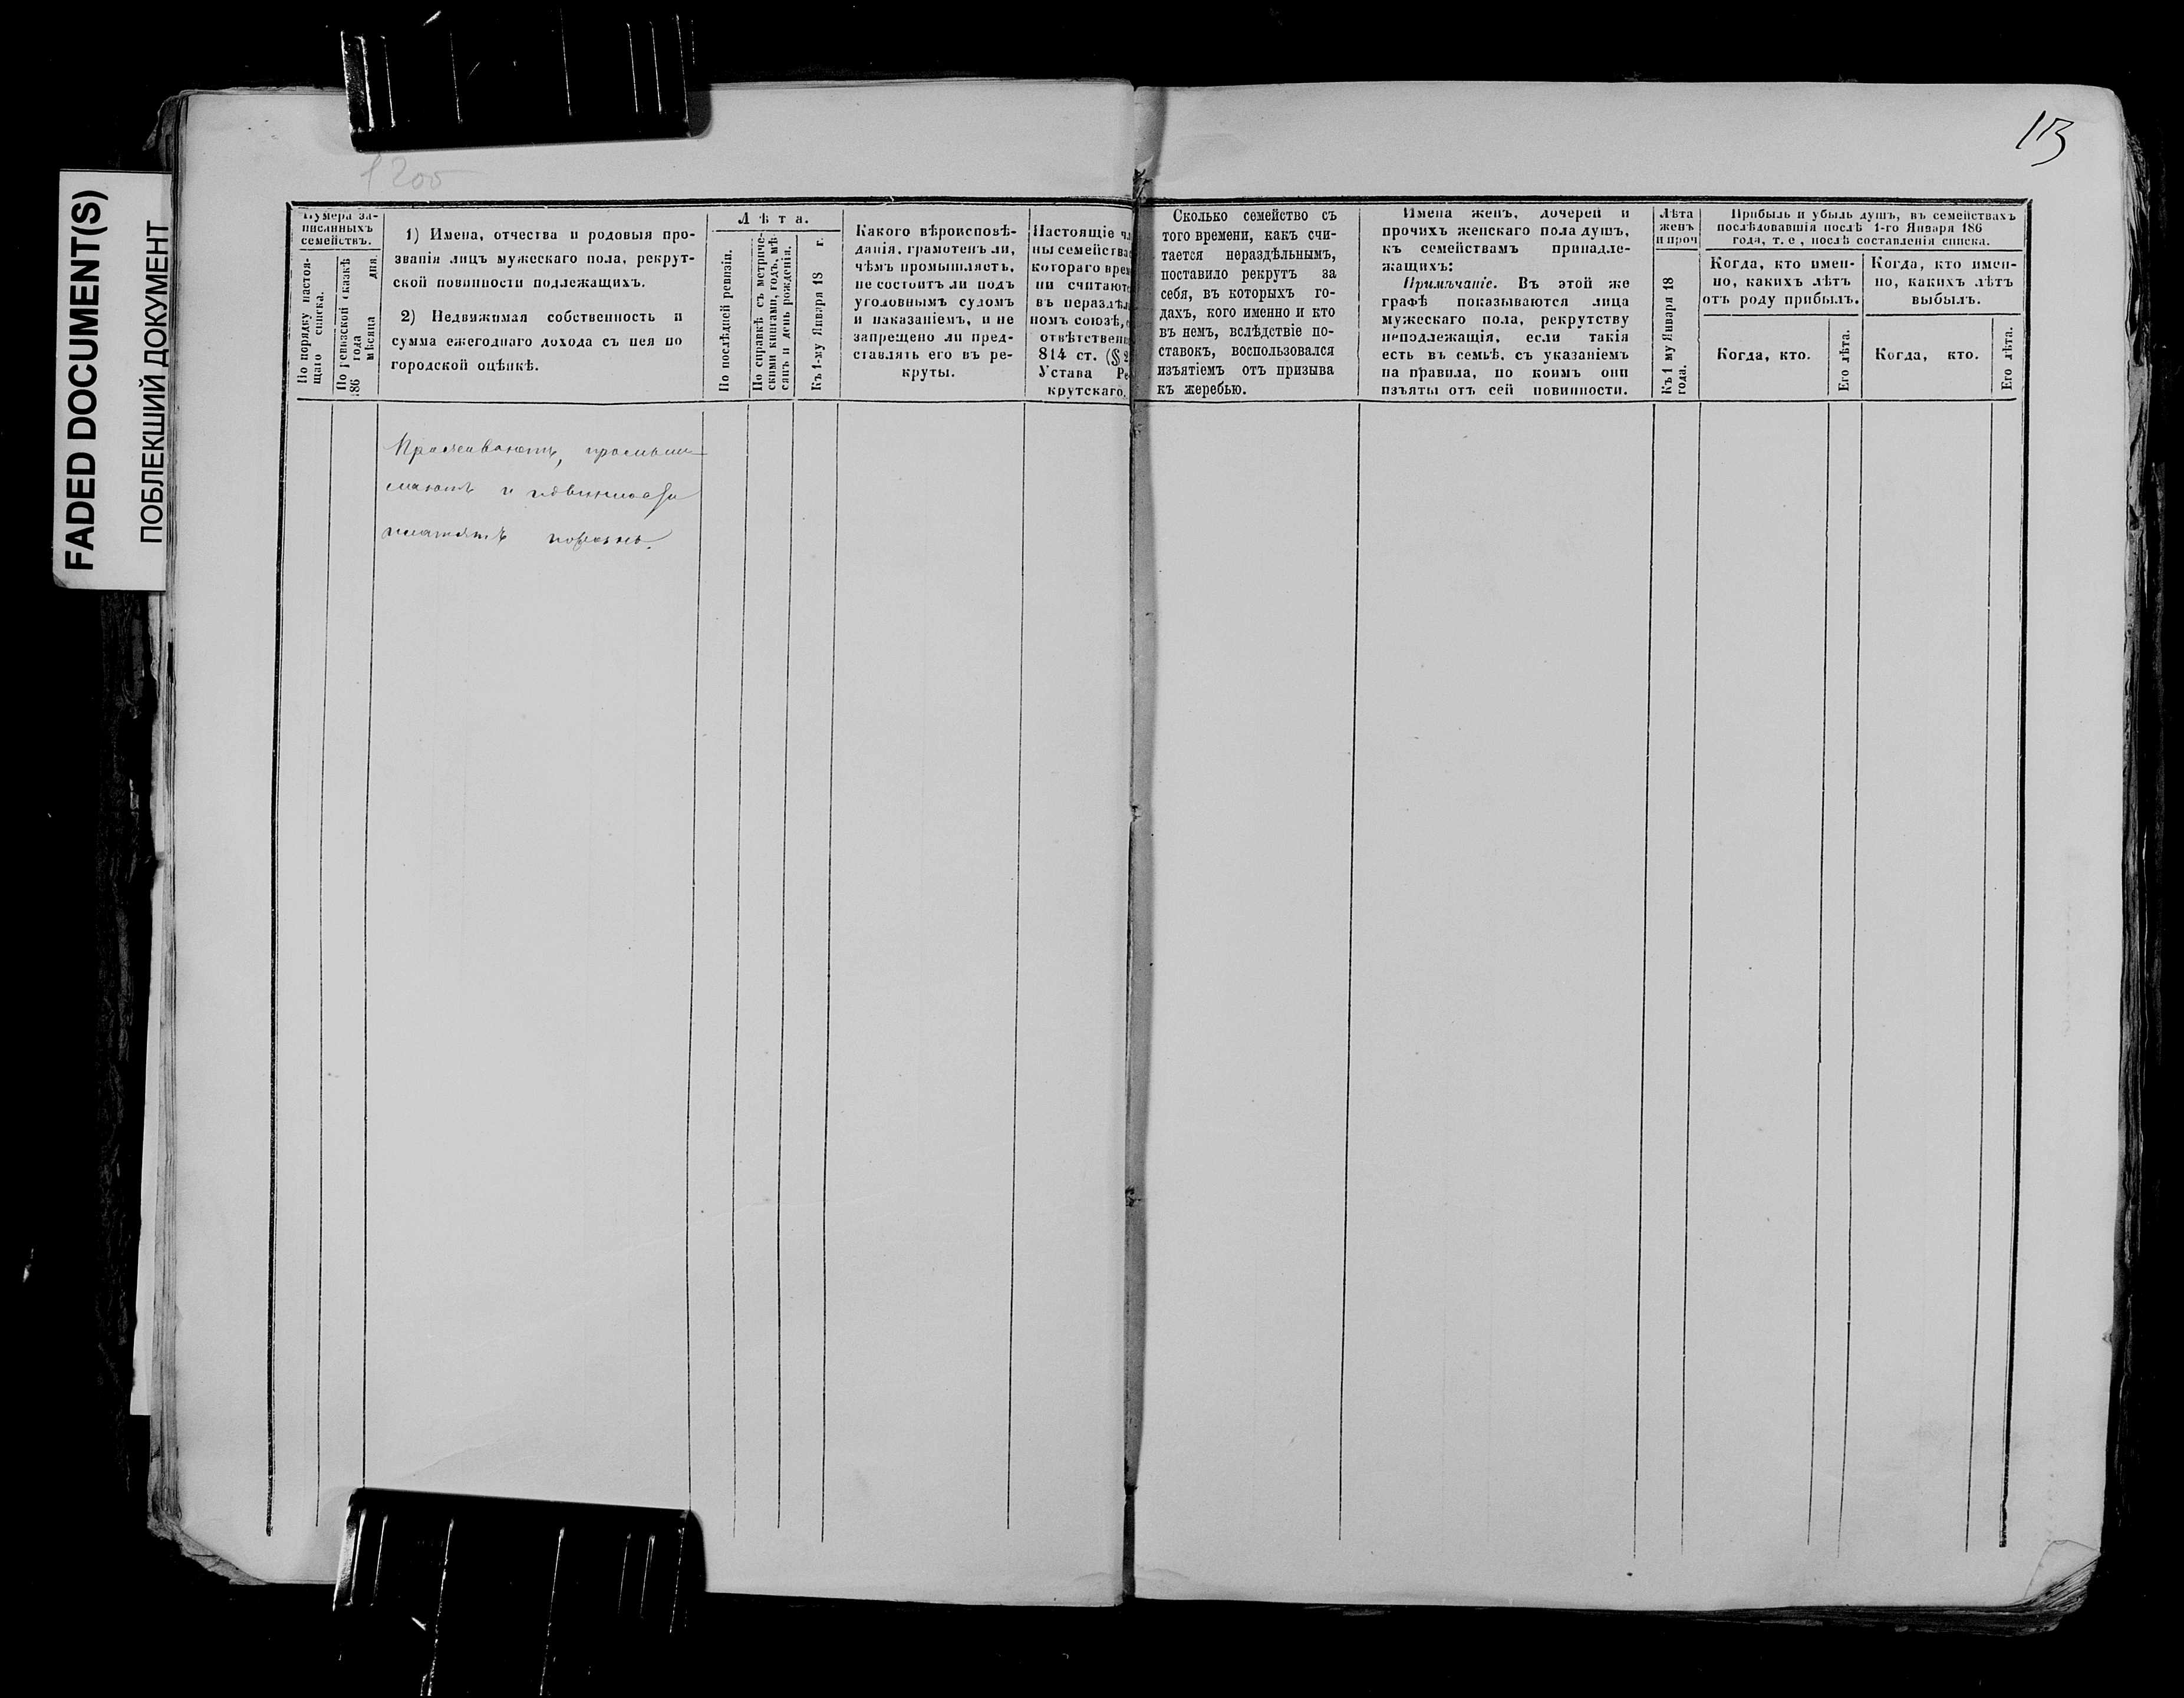 FADED DOCUMENT(S)
ПОБЛЕКШИЙ ДОКУМЕНТ
1200
113
Нумера за-
писанныхъ
семействъ.
По порядку настоя-
щаго списка.
По ревизской сказкѣ
186 года
мѣсяца дня.
1) Имена, отчества и родовыя про-
званія лицъ мужескаго пола, рекрут-
ской повинности подлежащихъ.
2) Недвижимая собственность и
сумма ежегоднаго дохода съ нея по
городской оцѣнкѣ.
Лѣта.
По послѣдней ревизіи.
По справкѣ съ метриче-
скими книгами, годъ, мѣ-
сяцъ и день рожденія.
Къ 1-му Января 18 г.
Какого вѣроисповѣ-
данія, грамотенъ ли,
чѣмъ промышляетъ,
не состоитъ ли подъ
уголовнымъ судомъ
и наказаніемъ, и не
запрещено ли пред-
ставлять его въ ре-
круты.
Настоящіе чл
ны семейства
котораго врем
ни считаютс
въ нераздѣл
номъ союзѣ,
отвѣтственн
814 ст. (§ 2
Устава Ре
крутскаго.
Сколько семейство съ
того времени, какъ счи-
тается нераздѣльнымъ,
поставило рекрутъ за
себя, въ которыхъ го-
дахъ, кого именно и кто
въ немъ, вслѣдствіе по-
ставокъ, воспользовался
изъятіемъ отъ призыва
къ жеребью.
Имена женъ, дочерей и
прочихъ женскаго пола душъ,
къ семействамъ принадле-
жащихъ:
Примѣчаніе. Въ этой же
графѣ показываются лица
мужескаго пола, рекрутству
неподлежащія, если такія
есть въ семьѣ, съ указаніемъ
на правила, по коимъ они
изъяты отъ сей повинности.
Лѣта
женъ
и проч
Къ 1 му Января 18
года.
Прибыль и убыль душъ, въ семействахъ
послѣдовавшія послѣ 1-го Января 186
года, т. е, послѣ составленія списка.
Когда, кто имен-
но, какихъ лѣтъ
отъ роду прибылъ.
Когда, кто.
Его лѣта.
Когда, кто имен-
но, какихъ лѣтъ
выбылъ.
Когда, кто.
Его лѣта.
Проживаютъ, промыш
ляютъ и повинности
платятъ порознь.